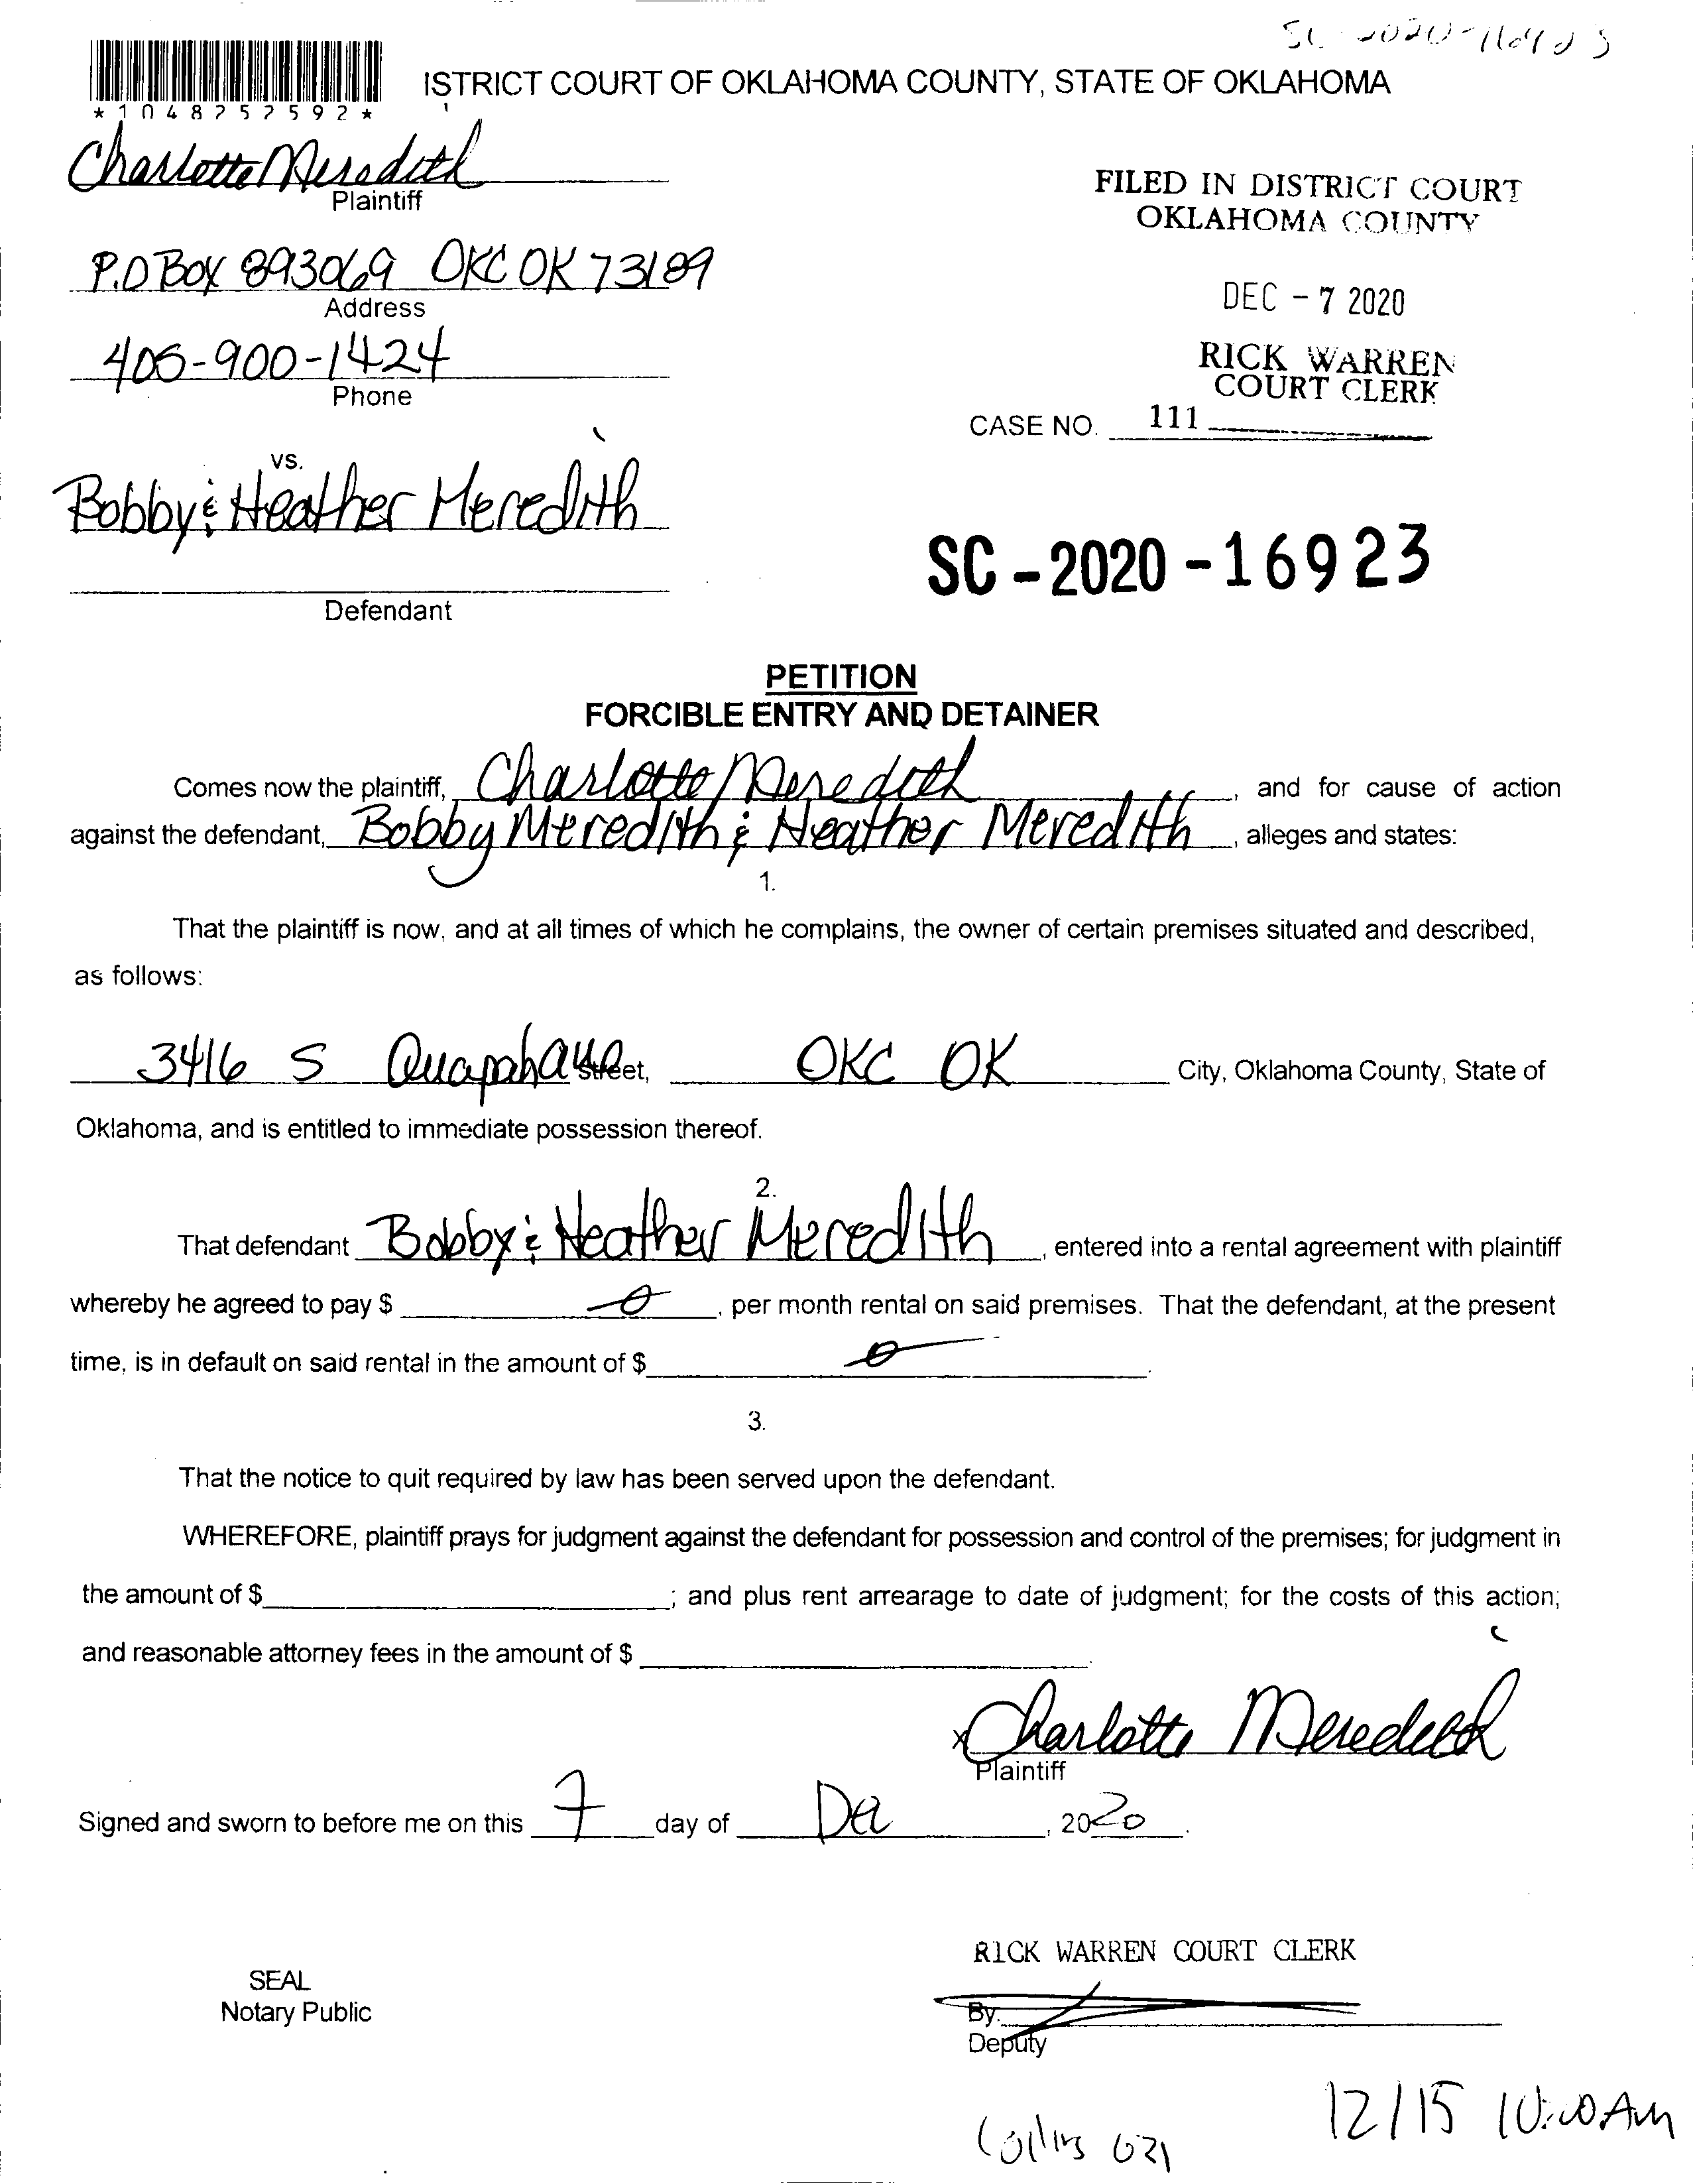 SC-2020-16923
ISTRICT COURT OF OKLAHOMA COUNTY, STATE OF OKLAHOMA
*1048252592*
Charlotte Meredith
Plaintiff
FILED IN DISTRICT COURT
OKLAHOMA COUNTY
P.O BOX 893069 OKC OK 73189
Address
DEC - 7 2020
405-900-1424
Phone
RICK WARREN
COURT CLERK
CASE NO. 111
vs.
Bobby & Heather Meredith
Defendant
SC - 2020 - 16923
PETITION
FORCIBLE ENTRY AND DETAINER
Comes now the plaintiff, Charlotte Meredith, and for cause of action
against the defendant, Bobby Meredith & Heather Meredith, alleges and states:
1.
That the plaintiff is now, and at all times of which he complains, the owner of certain premises situated and described,
as follows:
3416 S Quapah ave Street, OKC OK City, Oklahoma County, State of
Oklahoma, and is entitled to immediate possession thereof.
2.
That defendant Bobby & Heather Meredith, entered into a rental agreement with plaintiff
whereby he agreed to pay $ 0, per month rental on said premises. That the defendant, at the present
time, is in default on said rental in the amount of $ 0.
3.
That the notice to quit required by law has been served upon the defendant.
WHEREFORE, plaintiff prays for judgment against the defendant for possession and control of the premises; for judgment in
the amount of $ ; and plus rent arrearage to date of judgment; for the costs of this action;
and reasonable attorney fees in the amount of $ .
x Charlotte Meredith
Plaintiff
Signed and sworn to before me on this 7 day of Dec, 2020.
RICK WARREN COURT CLERK
SEAL
Notary Public
By.
Deputy
12/15 10:00 AM
Collins 621